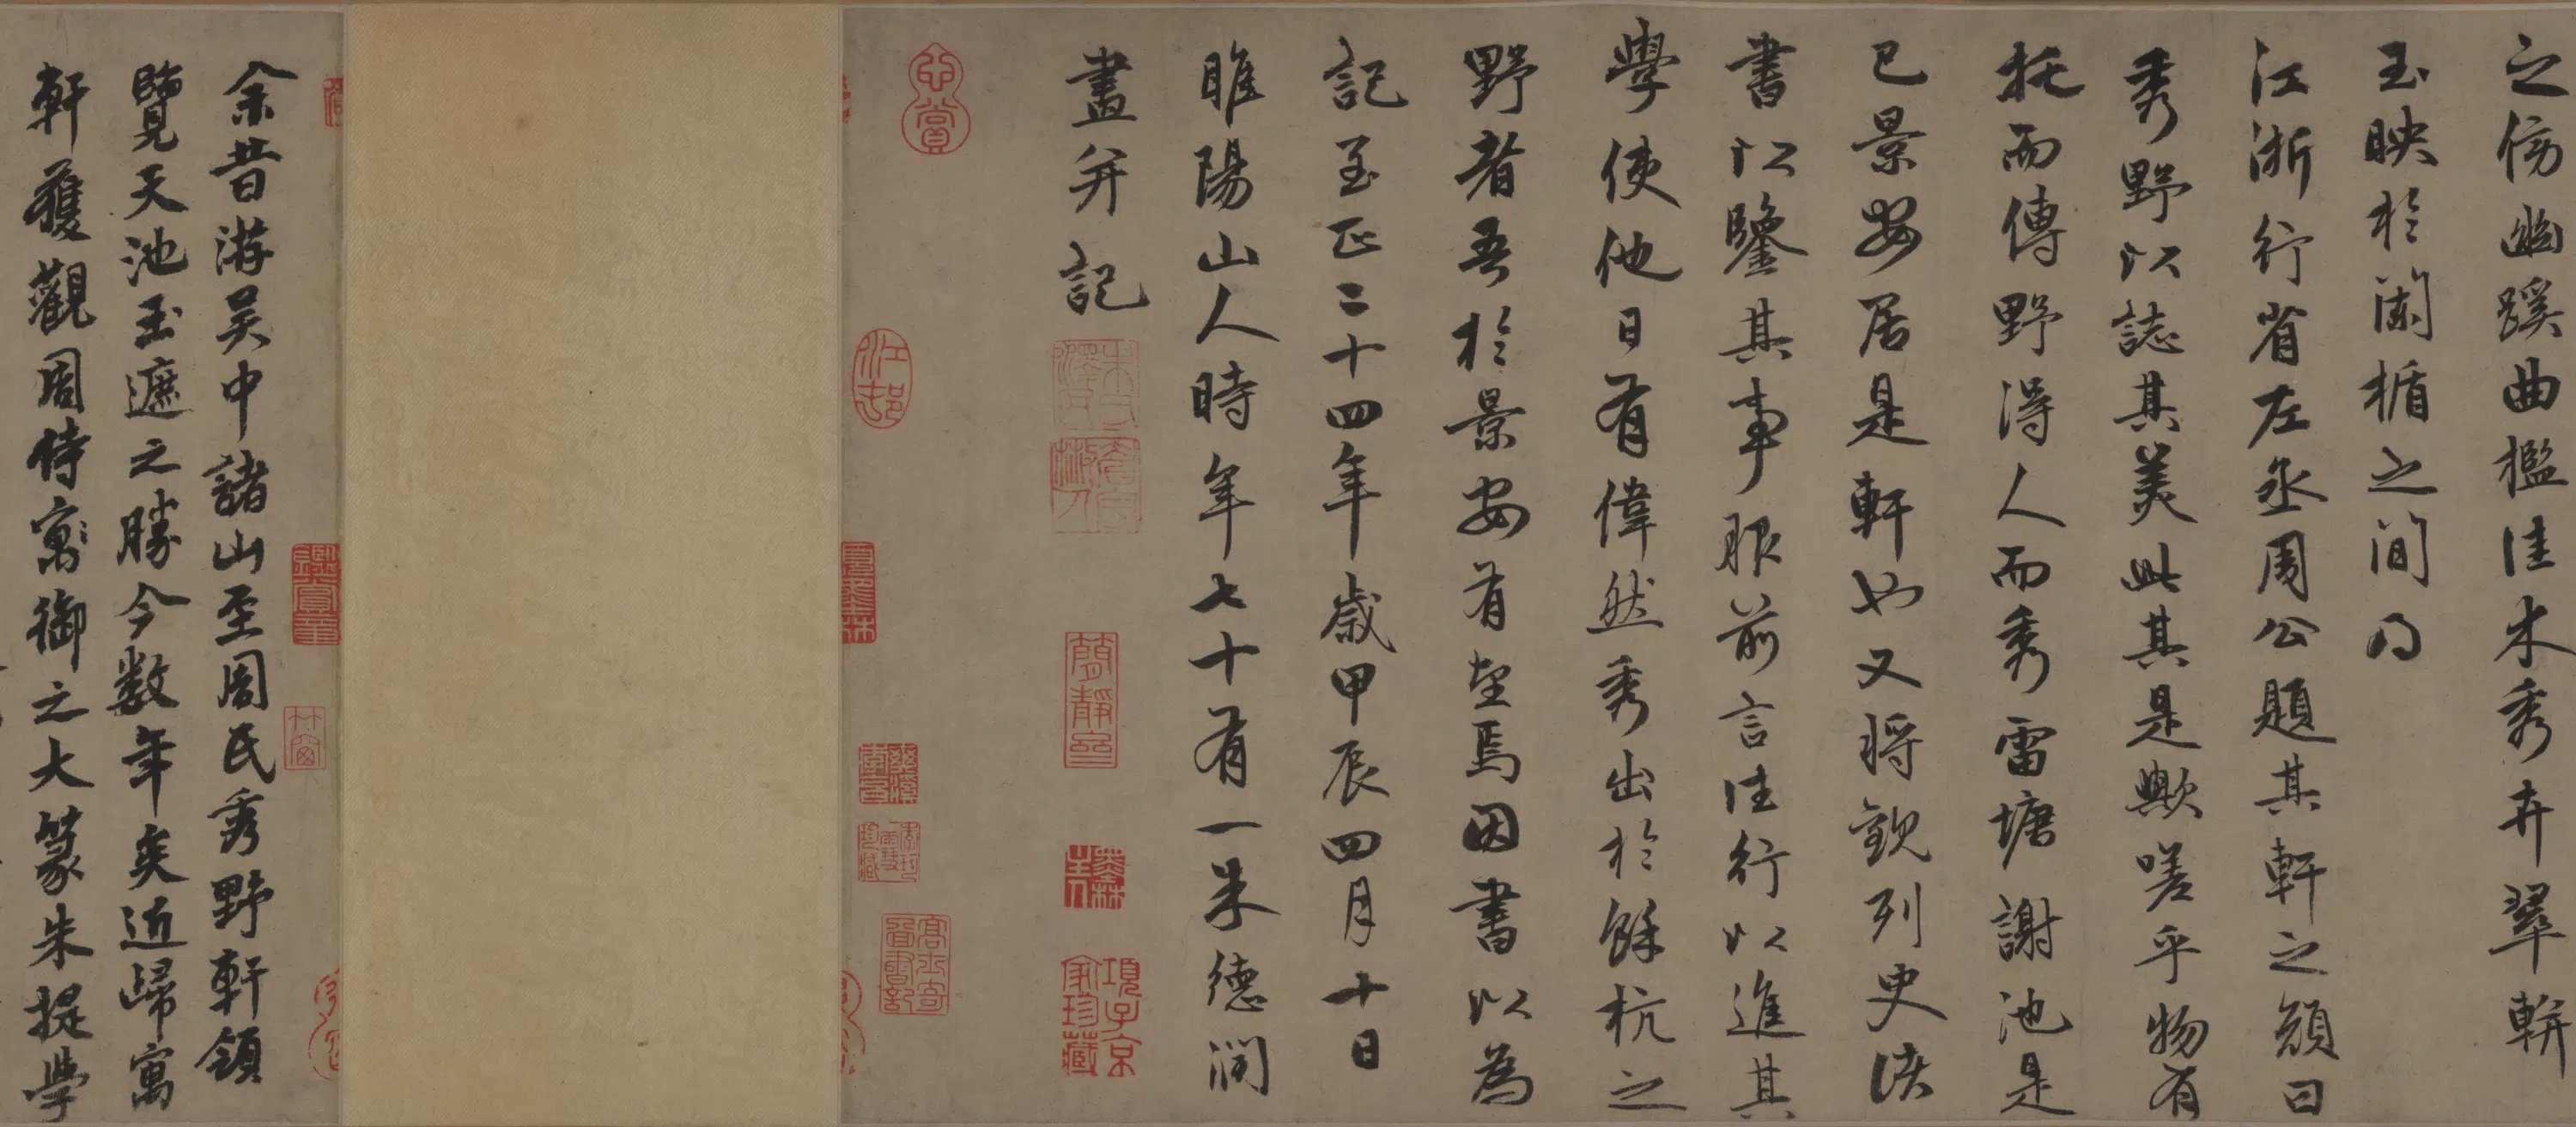 之傍幽蹊曲檻佳木秀卉翠軿
玉映於闌楯之間乃
江浙行省左丞周公題其軒之顏曰
秀野以誌其美此其是歟嗟乎物有
托而傳野得人而秀雷塘謝池是
已景安居是軒也又將觀列史諸
書以鑒其事服前言往行以進其
學使他日有偉然秀出於餘杭之
野者吾於景安有望焉因書以為
記至正二十四年歲甲辰四月十日
睢陽山人時年七十有一朱德潤
畫并記
余昔游吳中諸山至周氏秀野軒領
覽天池玉遮之勝今数年矣近歸寓
軒獲觀周侍寓御之大篆朱提學
項子京
家珍藏